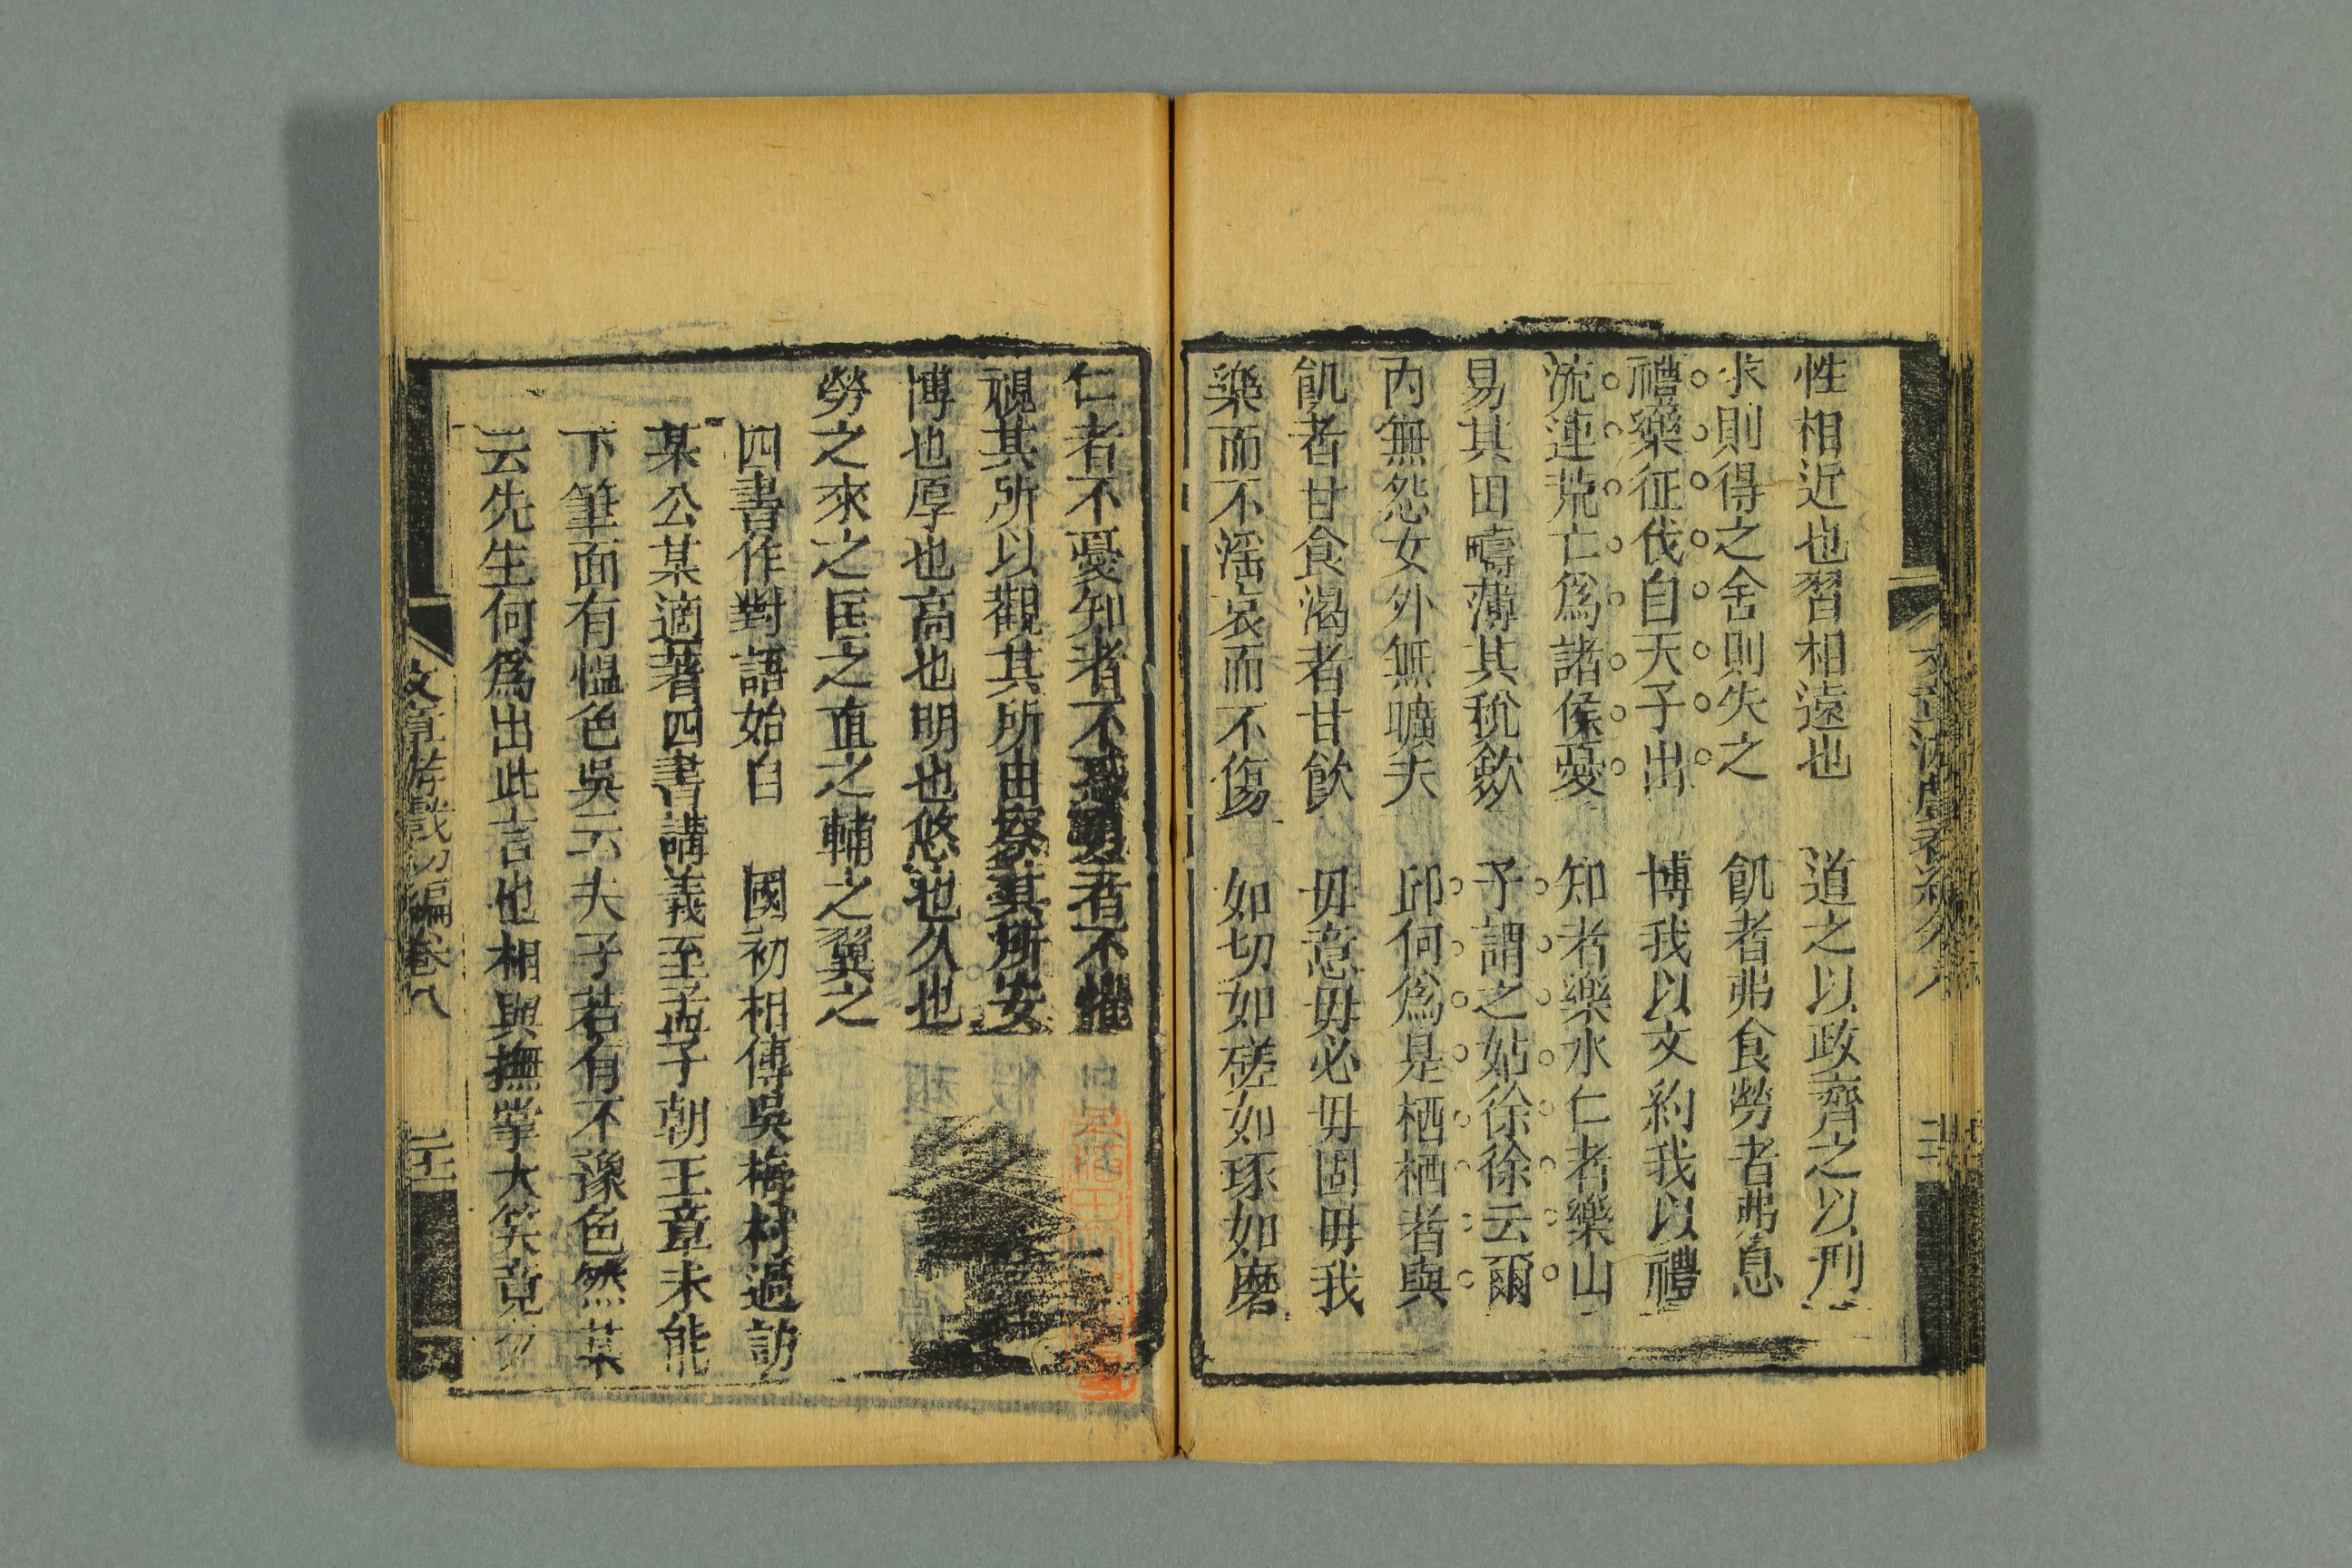 性相近也習相遠也　道之以政齊之以刑
求則得之舍則失之　飢者弗食勞者弗息
禮樂征伐自天子出　博我以文約我以禮
流連荒亡爲諸侯憂　知者樂水仁者樂山
易其田疇薄其稅歛　予謂之姑徐徐云爾
內無怨女外無曠夫　邱何爲是栖栖者與
飢者甘食渴者甘飲　毋意毋必毋固毋我
樂而不淫哀而不傷　如切如磋如琢如磨
仁者不憂知者不惑勇者不懼
視其所以觀其所由察其所安
博也厚也高也明也悠也久也
勞之來之匡之直之輔之翼之
四書作對語始自　國初相傳吳梅村過訪
某公某適著四書講義至孟子朝王章未能
下筆面有慍色吳云夫子若有不豫色然某
云先生何爲出此言也相與撫掌大笑竟
文章游戲初編卷八